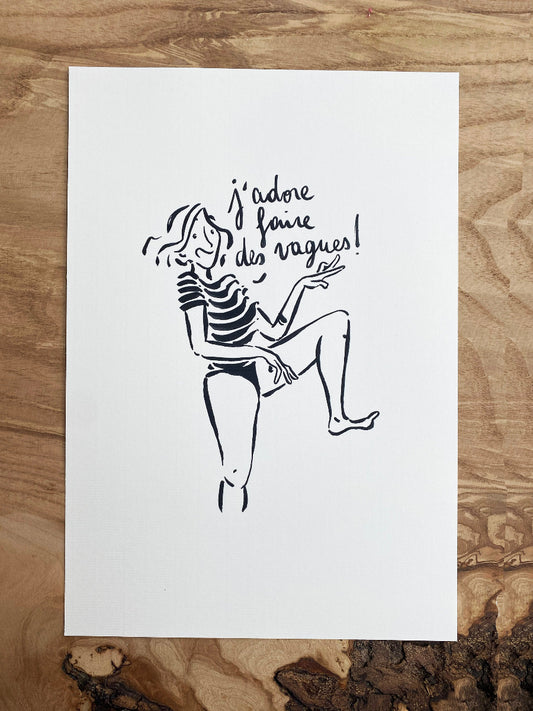 j'adore
faire
des vagues!